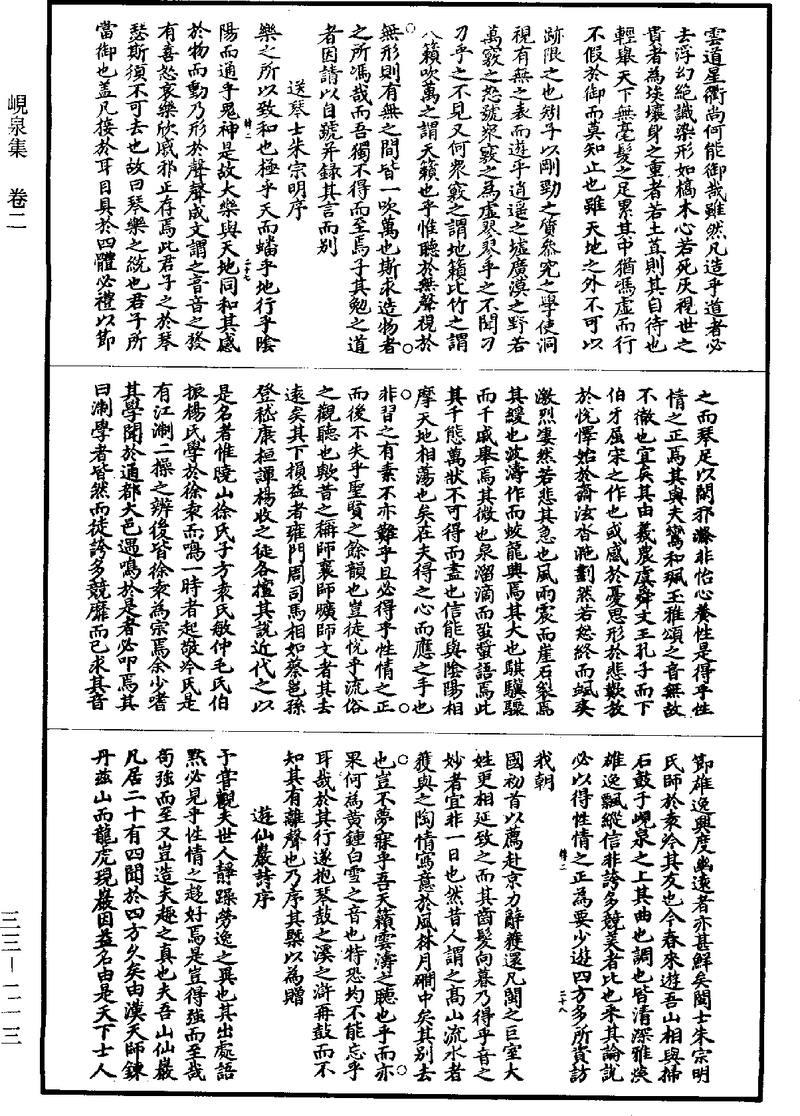 峴泉集　卷二
三三—二一三
雲道星衢尚何能御哉雖然凡造乎道者必
去浮幻絶識染形如槁木心若死灰視世之
貴者為埃壤身之重者若土苴則其自待也
輕舉天下無毫髮之足累其中猶馮虛而行
不假於御而莫知止也雖天地之外不可以
跡限之也矧子以剛勁之質叅究之學使洞
視有無之表而遊乎逍遥之墟廣漠之野若
萬竅之怒號衆竅之為虛翏翏乎之不聞刁
刁乎之不見又何衆竅之謂地籟比竹之謂
八籟吹萬之謂天籟也乎惟聽於無聲視於
無形則有無之間皆一吹萬也斯求造物者
之所馮哉而吾獨不得而至焉子其勉之道
者因請以自號并録其言而别
送琴士朱宗明序
樂之所以致和也極乎天而蟠乎地行乎陰
陽而通乎鬼神是故大樂與天地同和其感
於物而動乃形於聲聲成文謂之音音之發
有喜怒哀樂欣戚邪正存焉此君子之於琴
瑟斯須不可去也故曰琴樂之統也君子所
當御也盖凡接於耳目具於四體必禮以節
之而琴足以閑邪滌非怡心養性是得乎性
情之正焉其與夫鸞和珮玉雅頌之音無故
不徹也宜矣其由羲農虞舜文王孔子而下
伯牙屈宋之作也或感於憂思形於悲歎放
於悅懌始於奫泫杳渺劃然若怒終而颯爽
激烈悽然若悲其急也風雨震而崖石裂焉
其緩也波濤作而蛟龍興焉其大也騏驥驟
而千戚舉焉其微也泉溜滴而蛩螿語焉此
其千態萬狀不可得而盡也信能與陰陽相
摩天地相蕩也矣在夫得之心而應之手也
非習之有素不亦難乎且必得乎性情之正
而後不失乎聖賢之餘韻也豈徒悅乎流俗
之觀聽也歟昔之稱師襄師曠師文者其去
遠矣其下損益者雍門周司馬相如蔡邕孫
登嵇康桓譚楊收之徒各擅其說近代之以
是名者惟曉山徐氏子方袁氏敏仲毛氏伯
振楊氏學於徐袁而鳴一時者起敬冷氏是
有江淛二操之辨後皆徐袁為宗焉余少嗜
其學聞於通都大邑遇鳴於是者必叩焉其
曰淛學者皆然而徒誇多競靡而已求其音
節雄逸興度幽遠者亦甚鮮矣閩士朱宗明
氏師於袁冷其友也今春來遊吾山相與掃
石鼓于峴泉之上其曲也調也皆清深雅淡
雄逸飄縱信非誇多競美者比也来其論說
必以得性情之正為要少遊四方多所資訪
我朝
國初首以薦赴京力辭獲還凡閩之巨室大
姓更相延致之而其齒髮向暮乃得乎音之
妙者宜非一日也然昔人謂之高山流水者
獲與之陶情寫意於風林月磵中矣其别去
也豈不夢寐乎吾天籟雲濤之聽也乎而亦
果何為黄鍾白雪之音也特恐均不能忘乎
耳哉於其行遂抱琴鼓之溪之滸再鼓而不
知其有離聲也乃序其槩以為贈
遊仙巖詩序
予嘗觀夫世人靜躁勞逸之異也其出處語
黙必見乎性情之趍好焉是豈得強而至哉
苟強而至又豈造夫趣之真也夫吾山仙巖
凡居二十有四聞於四方久矣由漢天師錬
丹兹山而龍虎現巖因益名由是天下士人